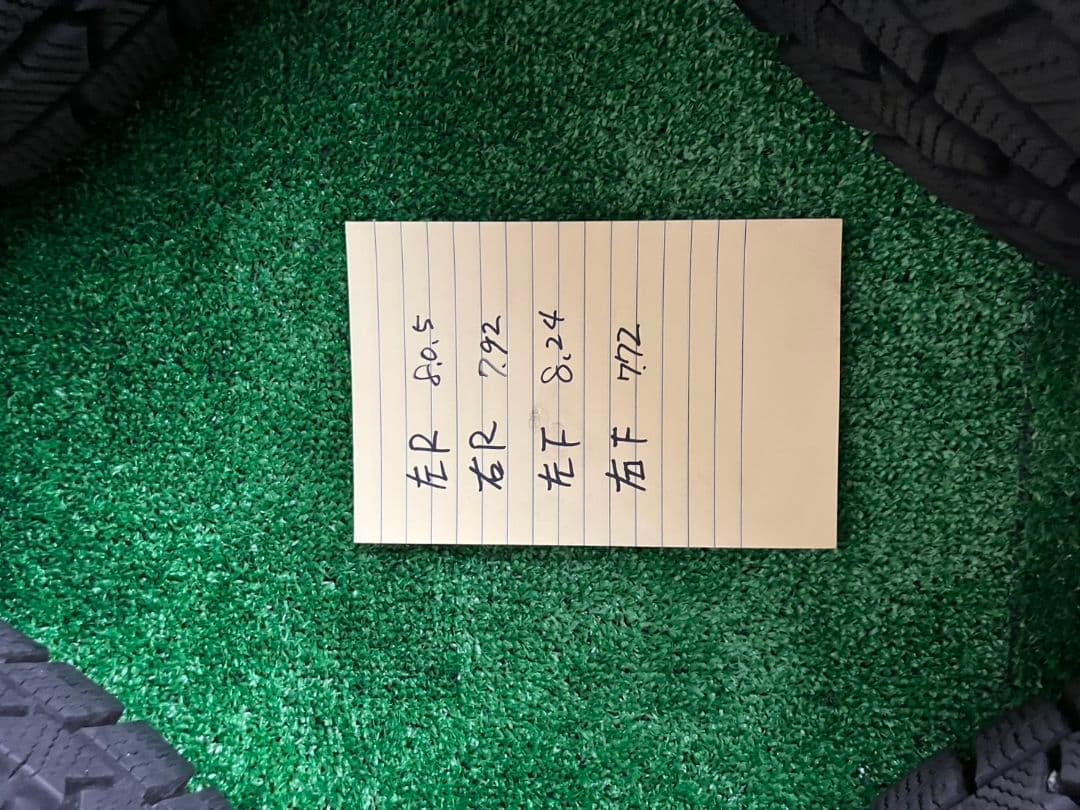 左R 8.0.5
右R 7.92
左F 8.24
右F 7.72